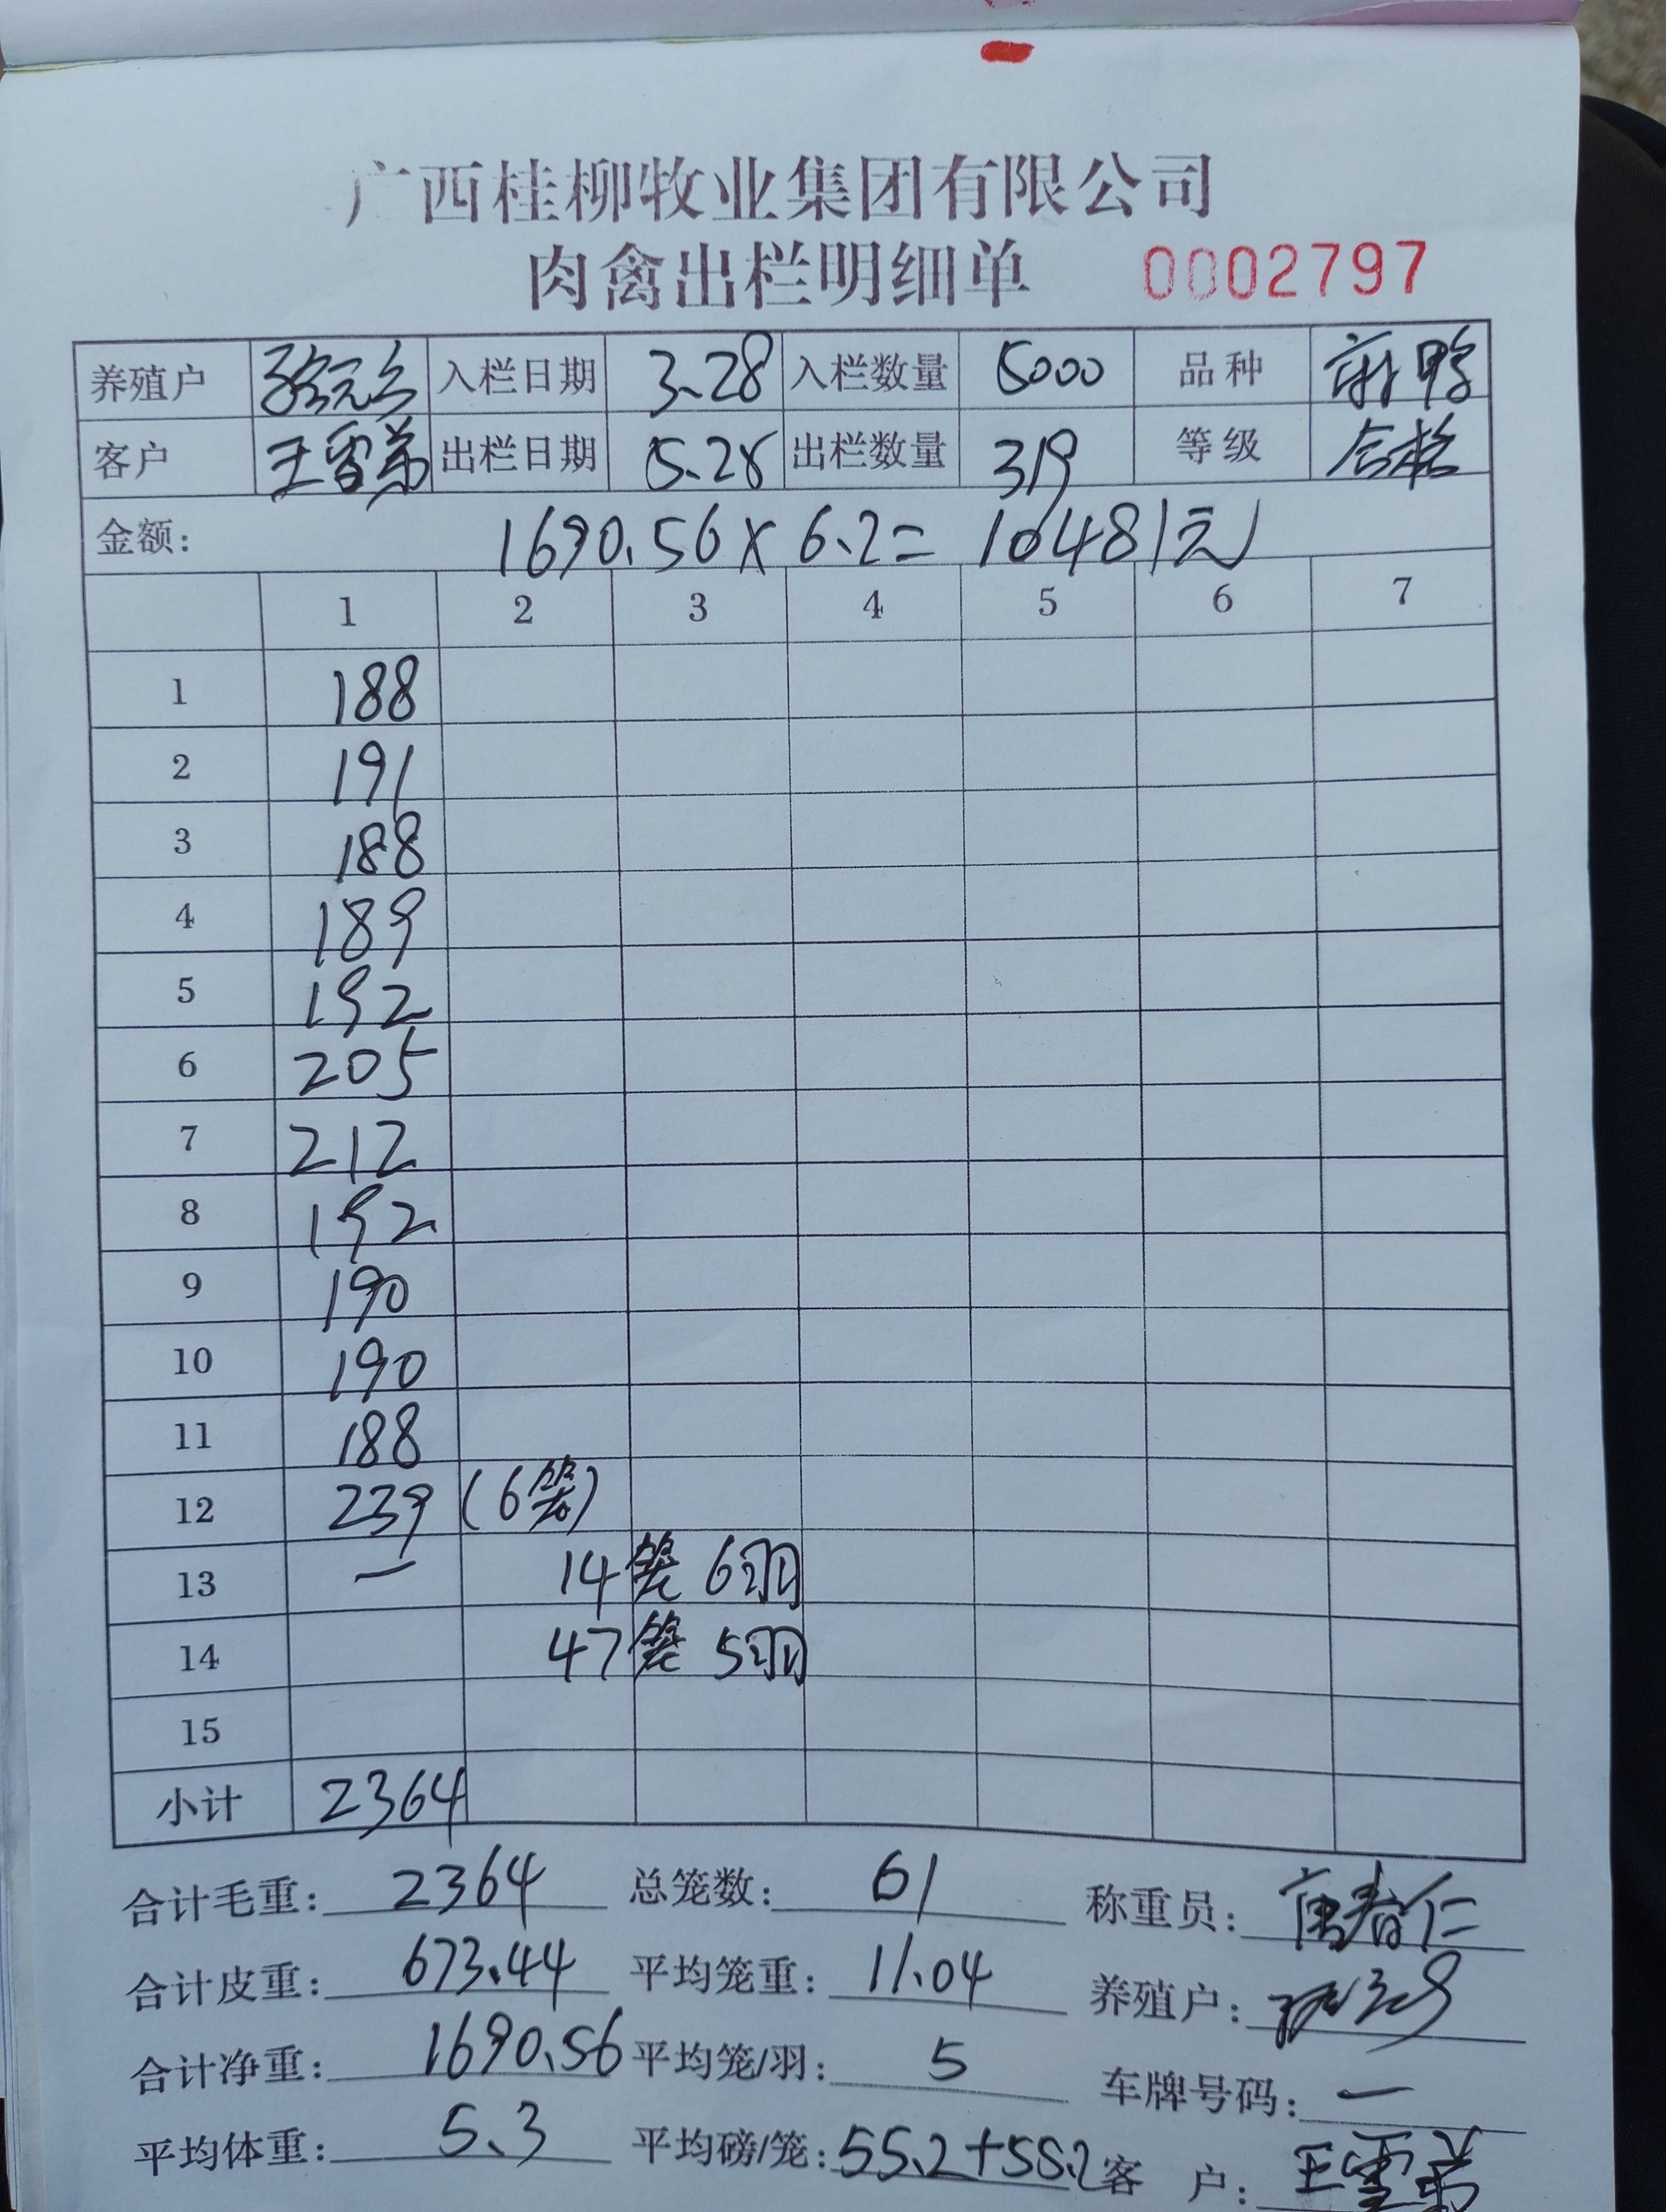 广西桂柳牧业集团有限公司
肉禽出栏明细单 0002797
养殖户 入栏日期 3.28 入栏数量 5000 品种 麻鸭
客户 王雪弟 出栏日期 5.28 出栏数量 319 等级 合格
金额: 1690.56×6.2=10481元
1 2 3 4 5 6 7
1 188
2 191
3 188
4 189
5 192
6 205
7 212
8 192
9 190
10 190
11 188
12 239 (6笼)
13 一 14笼 6羽
14 47笼 5羽
15
小计 2364
合计毛重: 2364 总笼数: 61 称重员: 唐春仁
合计皮重: 673.44 平均笼重: 11.04 养殖户:
合计净重: 1690.56 平均笼/羽: 5 车牌号码: 一
平均体重: 5.3 平均磅/笼: 55.2+55.2 客 户: 王雪弟